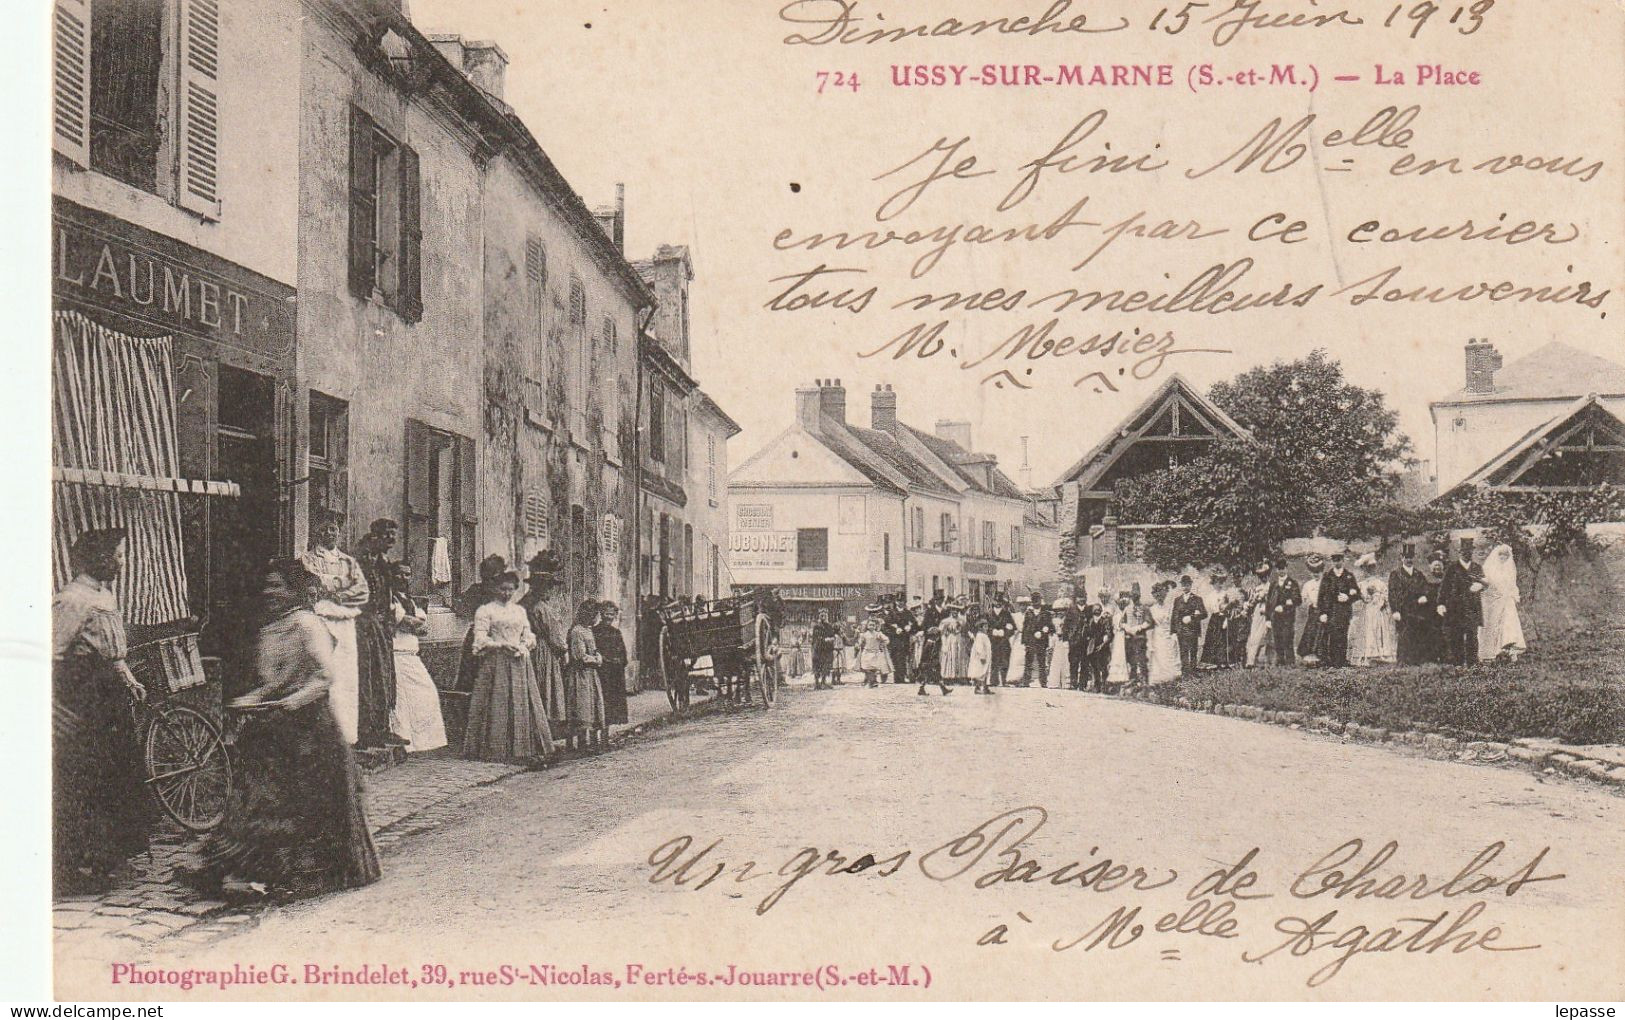 Dimanche 15 Juin 1913
724 USSY-SUR-MARNE (S.-et-M.) — La Place
Je fini Melle en vous
envoyant par ce courier
tous mes meilleurs souvenirs.
M. Messiez
LAUMET
CHOCOLAT
MENIER
DUBONNET
DE VIE LIQUEURS
Un gros Baiser de Charlot
à Melle Agathe
Photographie G. Brindelet, 39, rue St-Nicolas, Ferté-s.-Jouarre (S.-et-M.)
delcampe.net
lepasse